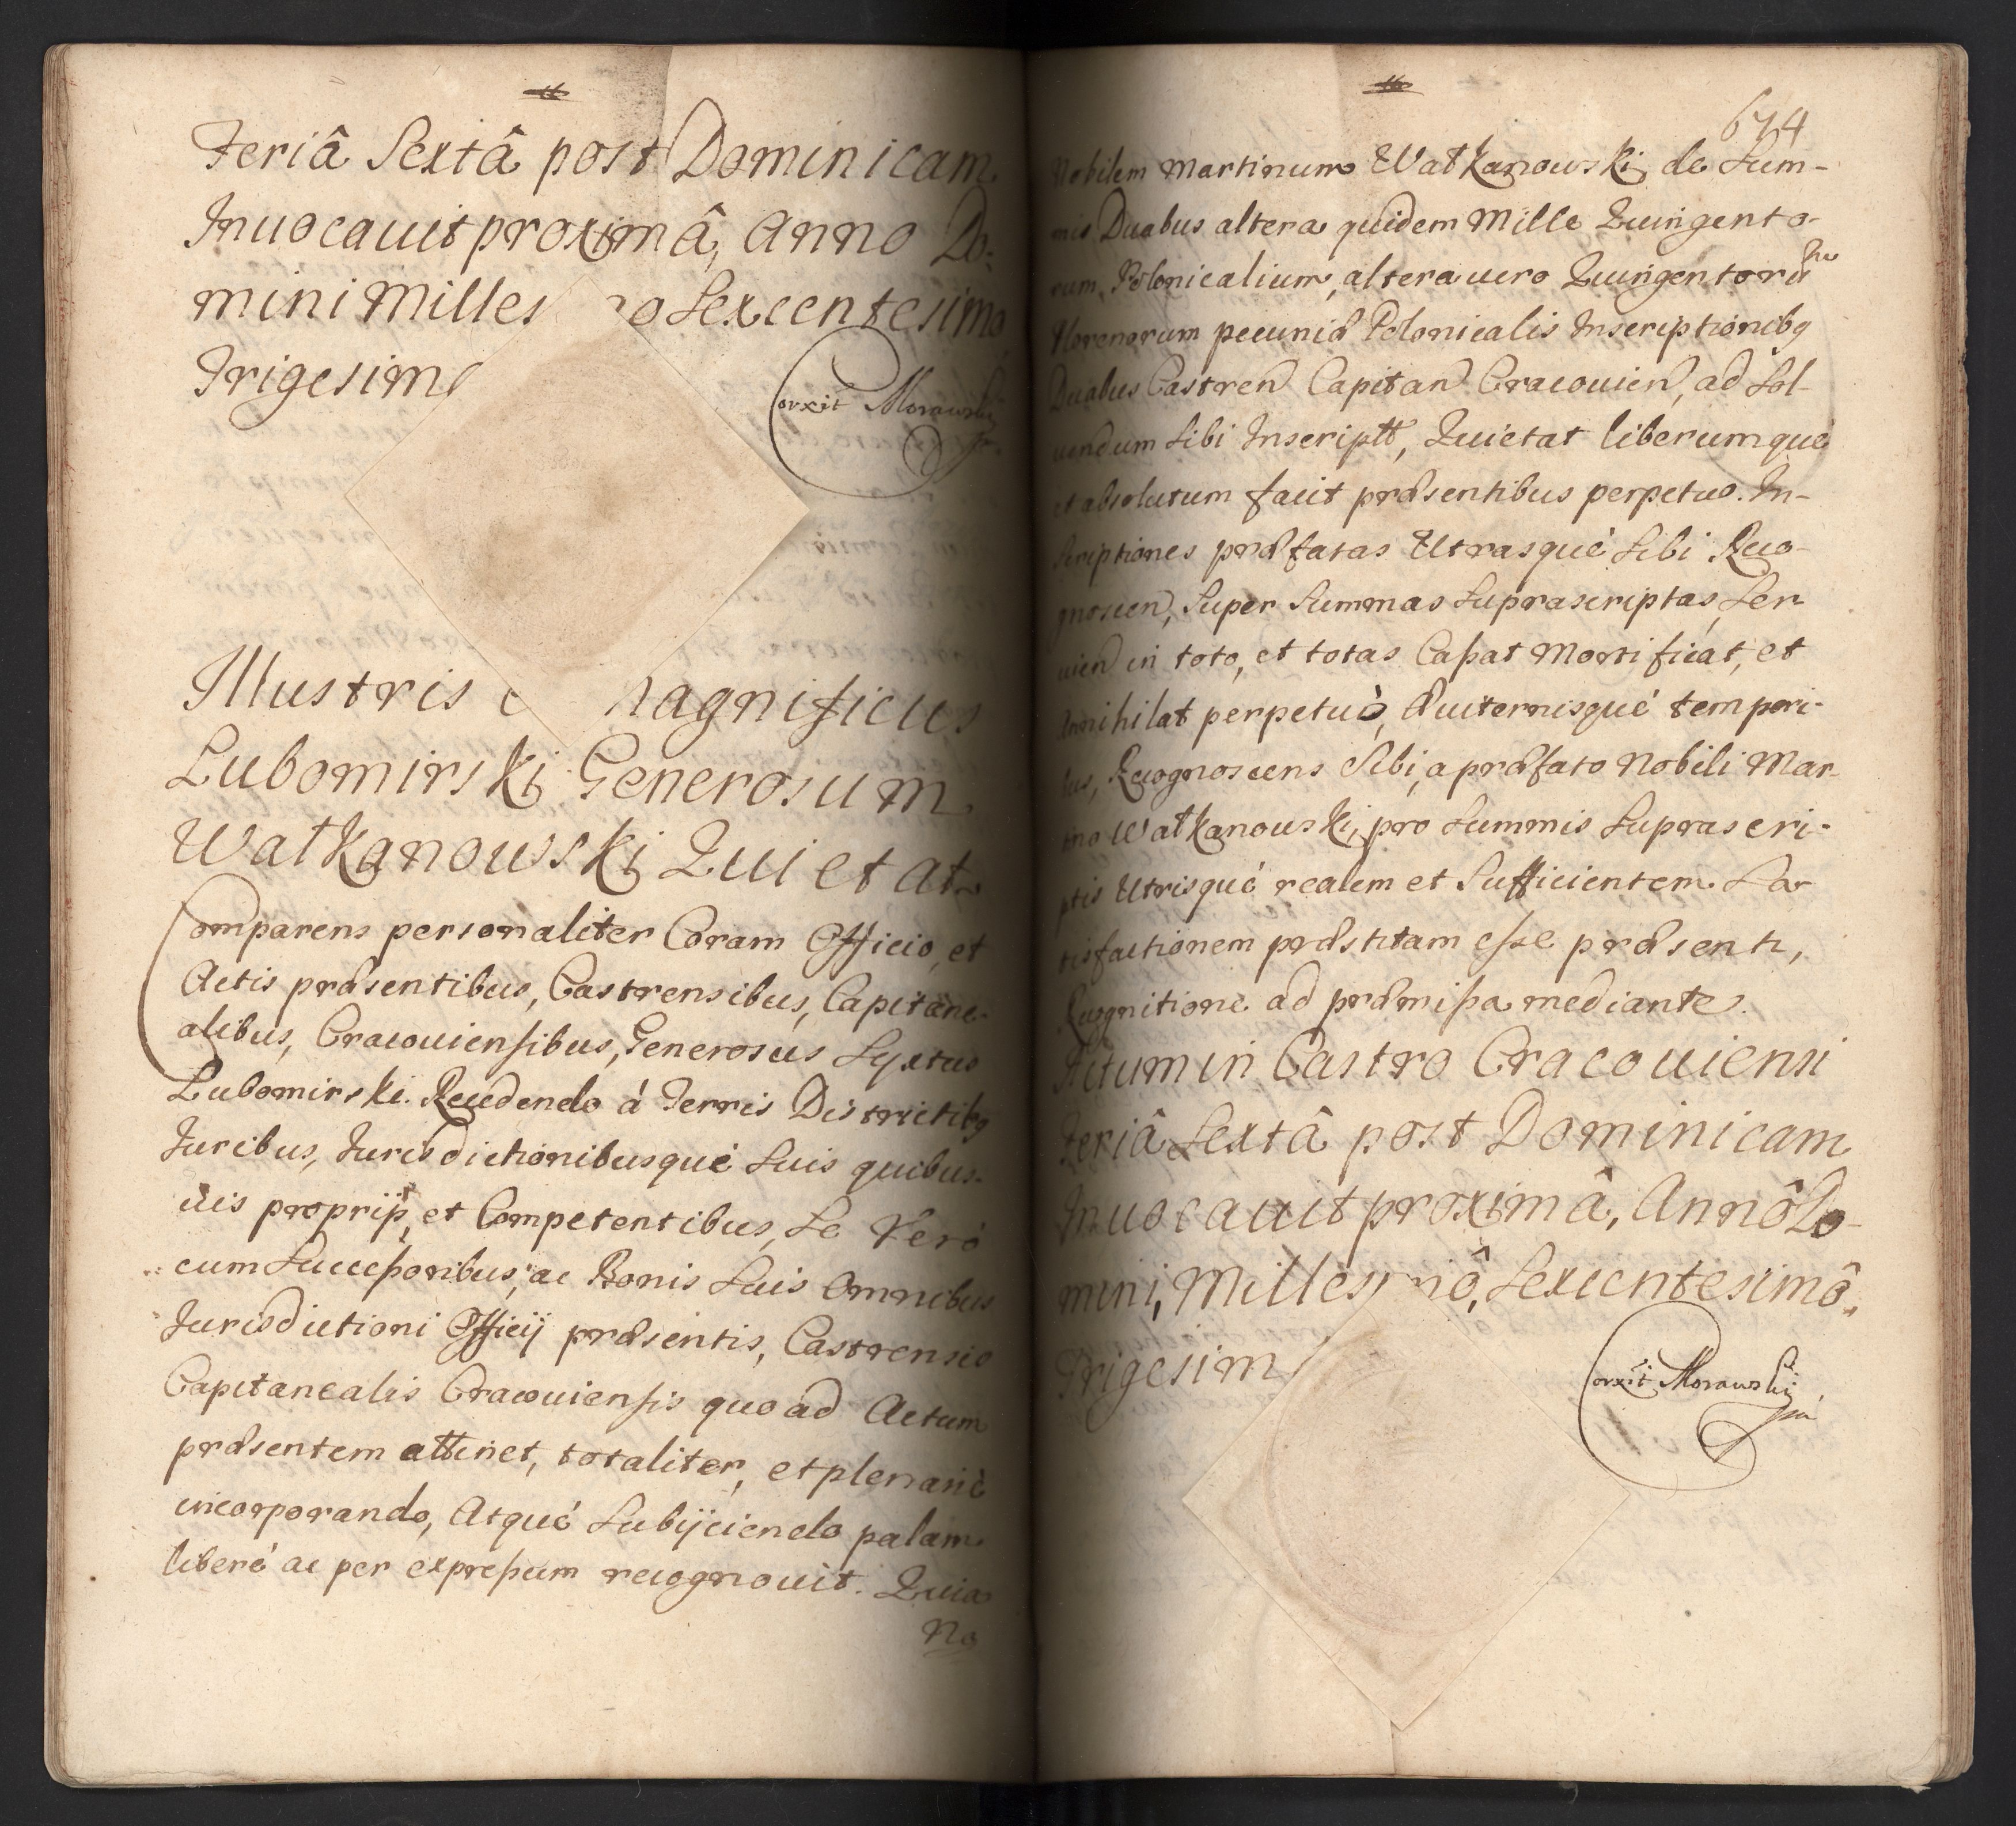 Feriâ Sextâ post Dominicam
Inuocauit proximâ, Anno Do:
mini Milles mo Sexcentesimo
Trigesim
Corxit Morawski
Illustris e Magnificus
Lubomirski Generosum
Watkanowski Quietat
Comparens personaliter Coram Officio, et
Actis præsentibus, Castrensibus, Capitane-
alibus, Cracouiensibus, Generosus Syxtus
Lubomirski. Recedendo à Terris Districtibq
Iuribus, Iurisdictionibusque Suis quibus-
uis proprijs, et Competentibus, Se Verò
cum Successoribus, ac Bonis Suis Omnibus
Iurisdictioni Officij præsentis, Castrensis
Capitanealis Cracouiensis quo ad Actum
præsentem attinet, totaliter, et plenariè
incorporando, Atque Subijciendo palam
liberè ac per expressum recognouit. Quia
No
674
Nobilem Martinum Watkanowski de Sum-
mis Duabus altera quidem Mille Quingento-
rum, Polonicalium, altera uero Quingentorũ
Florenorum pecuniæ Polonicalis Inscriptionibq
Duabus Castren Capitan Cracouien, ad Sol-
uendum Sibi Inscriptt, Quietat liberumque
et absolutum facit præsentibus perpetuo. In-
scriptiones præfatas Utrasque Sibi Reco-
gnoscen, Super Summas Suprascriptas, Ser
uien in toto, et totas Cassat Mortificat, et
Annihilat perpetuò, Æuiternisque tempori-
bus, Recognoscens Sibi, a præfato Nobili Mar-
tino Watkanowski, pro Summis Suprascri-
ptis Utrisque realem et Sufficientem Sa-
tisfactionem præstitam esse præsenti,
Recognitione ad præmissa mediante.
Actum in Castro Cracouiensi
Feriâ Sextâ post Dominicam
Inuocauit proximâ, Annô Do-
mini, Milles mô, Sexcentesimô,
Trigesim
Corxit Morawski